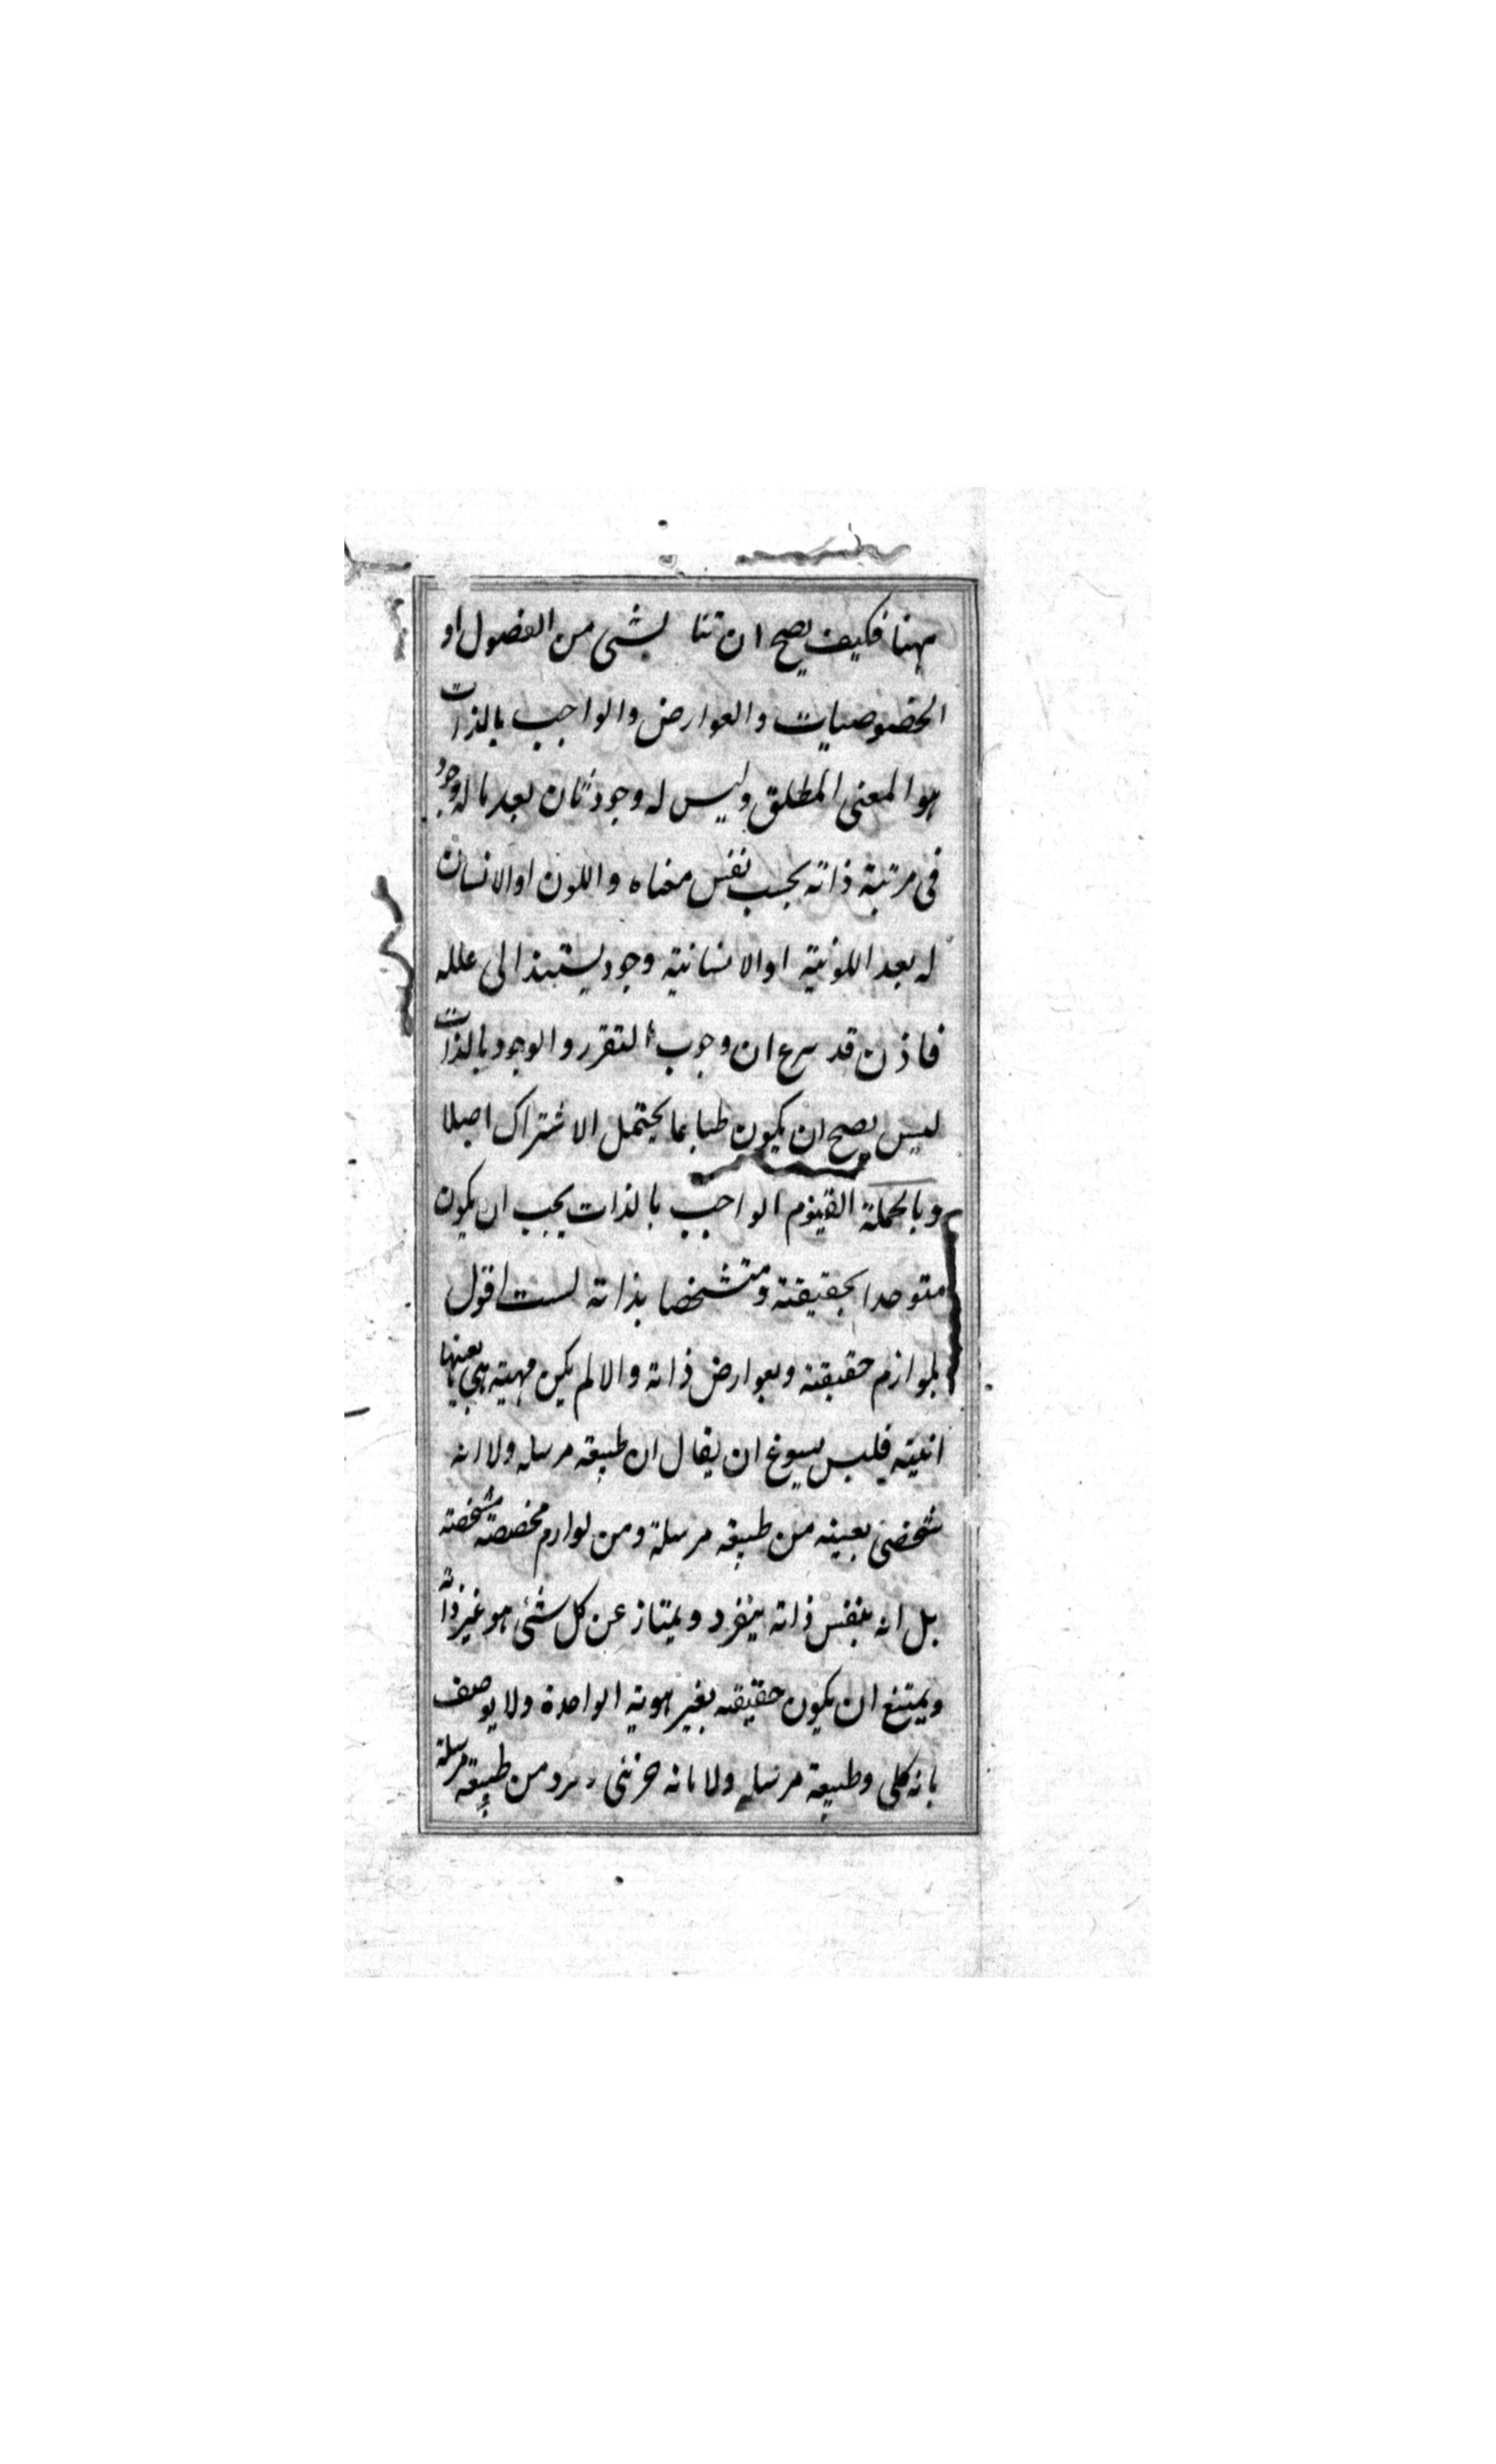 ههنا فكيف يصح ان تنا بشئ من الفصول او
الخصوصيات والعوارض والواجب بالذات
هو المعنى المطلق وليس له وجود ثان بعد ما له وجود
فى مرتبة ذاته بحسب نفس معناه واللون او الانسان
له بعد اللونية او الانسانية وجود يستند الى علله
فاذن قد سرع ان وجوب التقرر والوجود بالذات
ليس يصح ان يكون طباعا يحتمل الاشتراك اصلا
وبالجملة القيوم الواجب بالذات يجب ان يكون
متوحدا بحقيقته ومتشخصا بذاته لست اقول
بلوازم حقيقته وبعوارض ذاته والا لم يكن مهيته هى بعينها
انيته فليس يسوغ ان يقال ان طبيعة مرسله ولا انه
شخصى بعينه من طبيعه مرسلة ومن لوازم مخصصة مشخصته
بل انه بنفس ذاته ينفرد ويمتاز عن كل شئ هو غير ذاته
ويمتنع ان يكون حقيقته بغير هويته الواحدة ولا يوصف
بانه كلى وطبيعة مرسله ولا بانه جزئى من طبيعة مرسلة